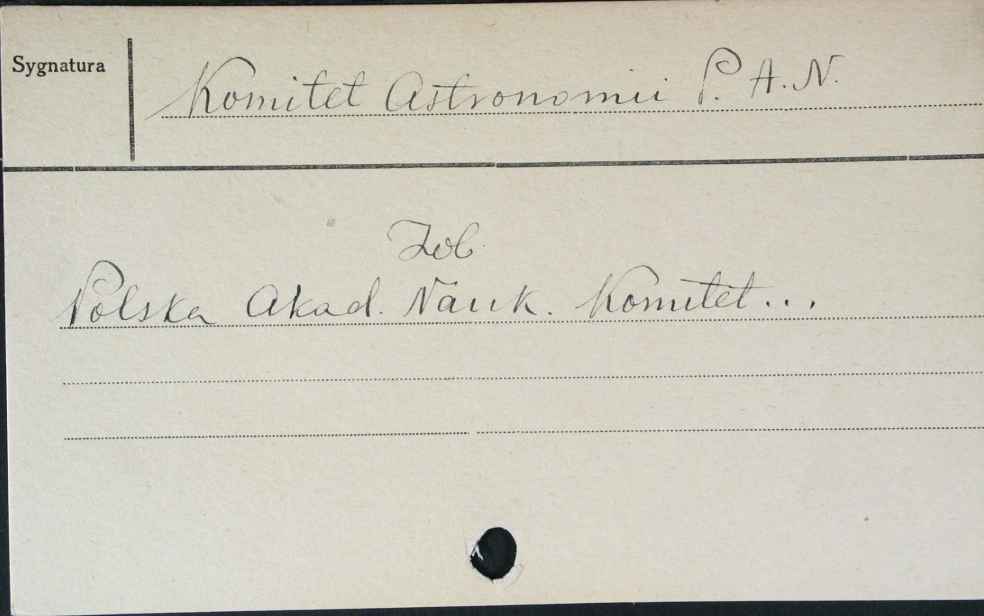 Sygnatura
Komitet Astronomii P. A. N.
Zob
Polska Akad. Nauk. Komitet...